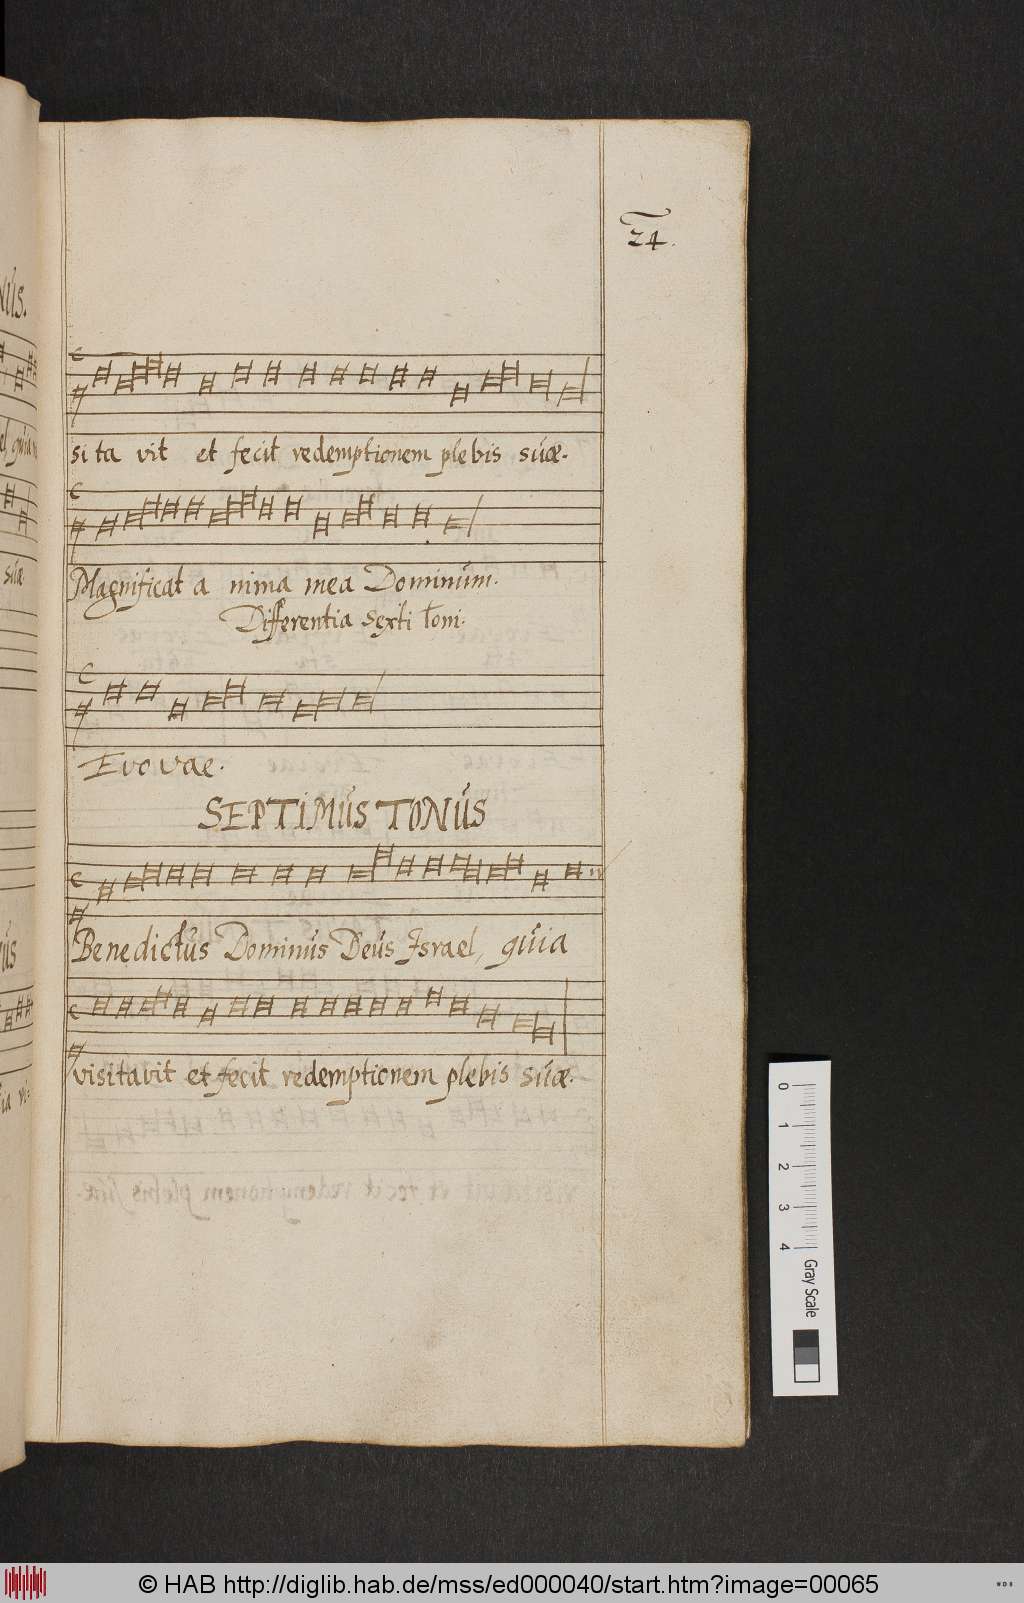 24.
si ta vit et fecit redemptionem plebis súæ.
Magnificat a nima mea Dominúm.
Differentia sexti toni.
Evovae.
SEPTIMÚS TONÚS
Benedictús Dominús Deús Israel, qúia
visitavit et fecit redemptionem plebis súæ.
súæ.
0 1 2 3 4 Gray Scale
© HAB http://diglib.hab.de/mss/ed000040/start.htm?image=00065